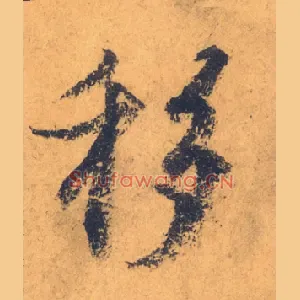 移
Shufawang.CN